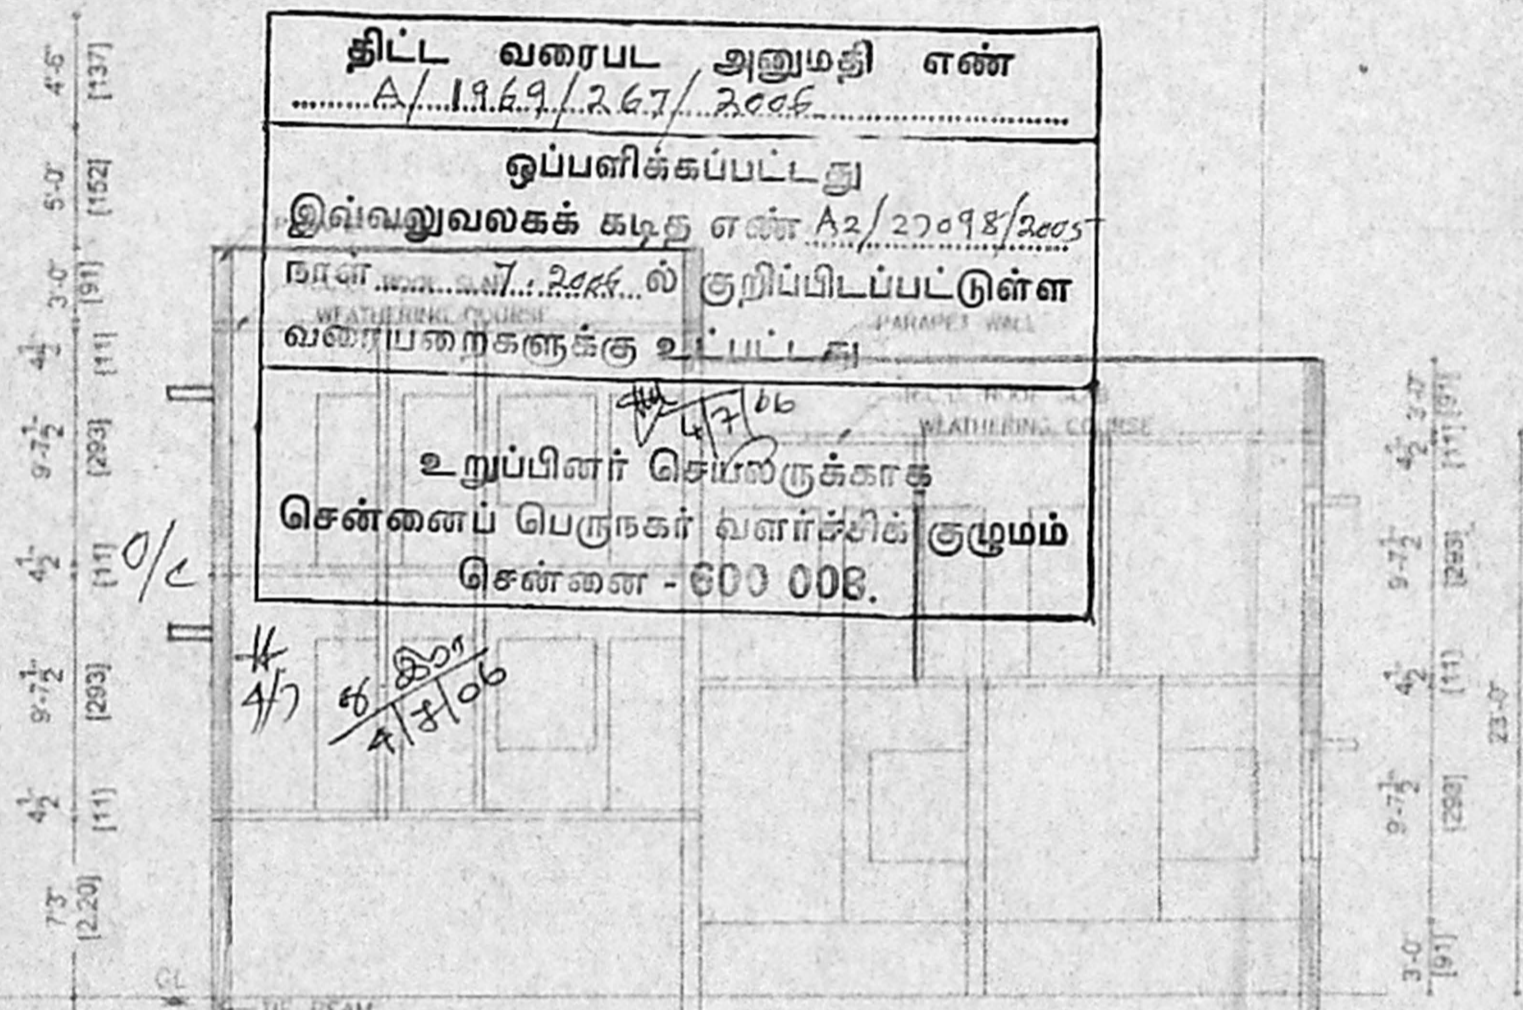 திட்ட வரைபட அனுமதி எண்
A/1969/267/2006
ஒப்பளிக்கப்பட்டது
இவ்வலுவலகக் கடித எண் A2/27098/2005
நாள் 7.2006 ல் குறிப்பிடப்பட்டுள்ள
வரையறைகளுக்கு உட்பட்டது
4/7/06
உறுப்பினர் செயலருக்காக
சென்னைப் பெருநகர் வளர்ச்சிக் குழுமம்
சென்னை - 600 008.
O/C
4/7
4/7/06
ROOF SLAB
WEATHERING COURSE
PARAPET WALL
ROOF SLAB
WEATHERING COURSE
4'-6" [137]
5'-0" [152]
3'-0" [91]
4½ [11]
9'-7½ [293]
4½ [11]
9'-7½ [293]
4½ [11]
7'3" [2.20]
3'-0" [91]
4½ [11]
9'-7½ [293]
4½ [11]
9'-7½ [293]
3'-0 [91]
23'-0"
GL
TIE BEAM